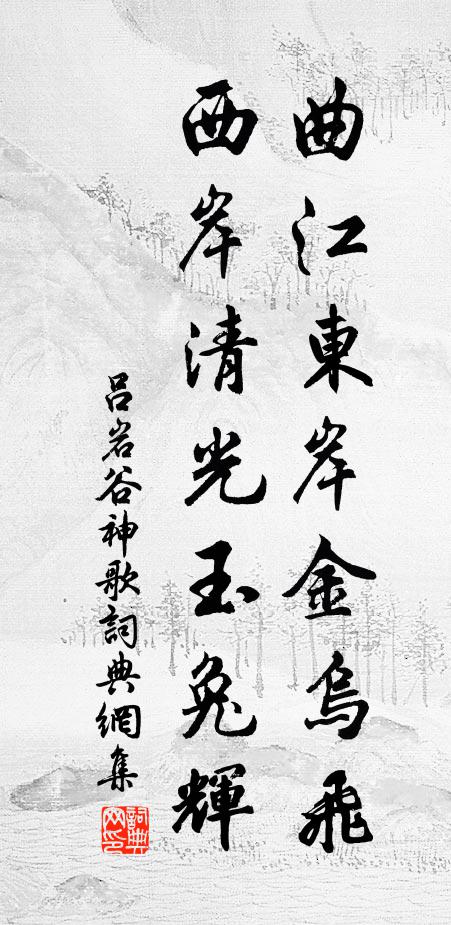 曲江東岸金烏飛
西岸清光玉兔輝
呂岩谷神歌詞典網集
詞典網印